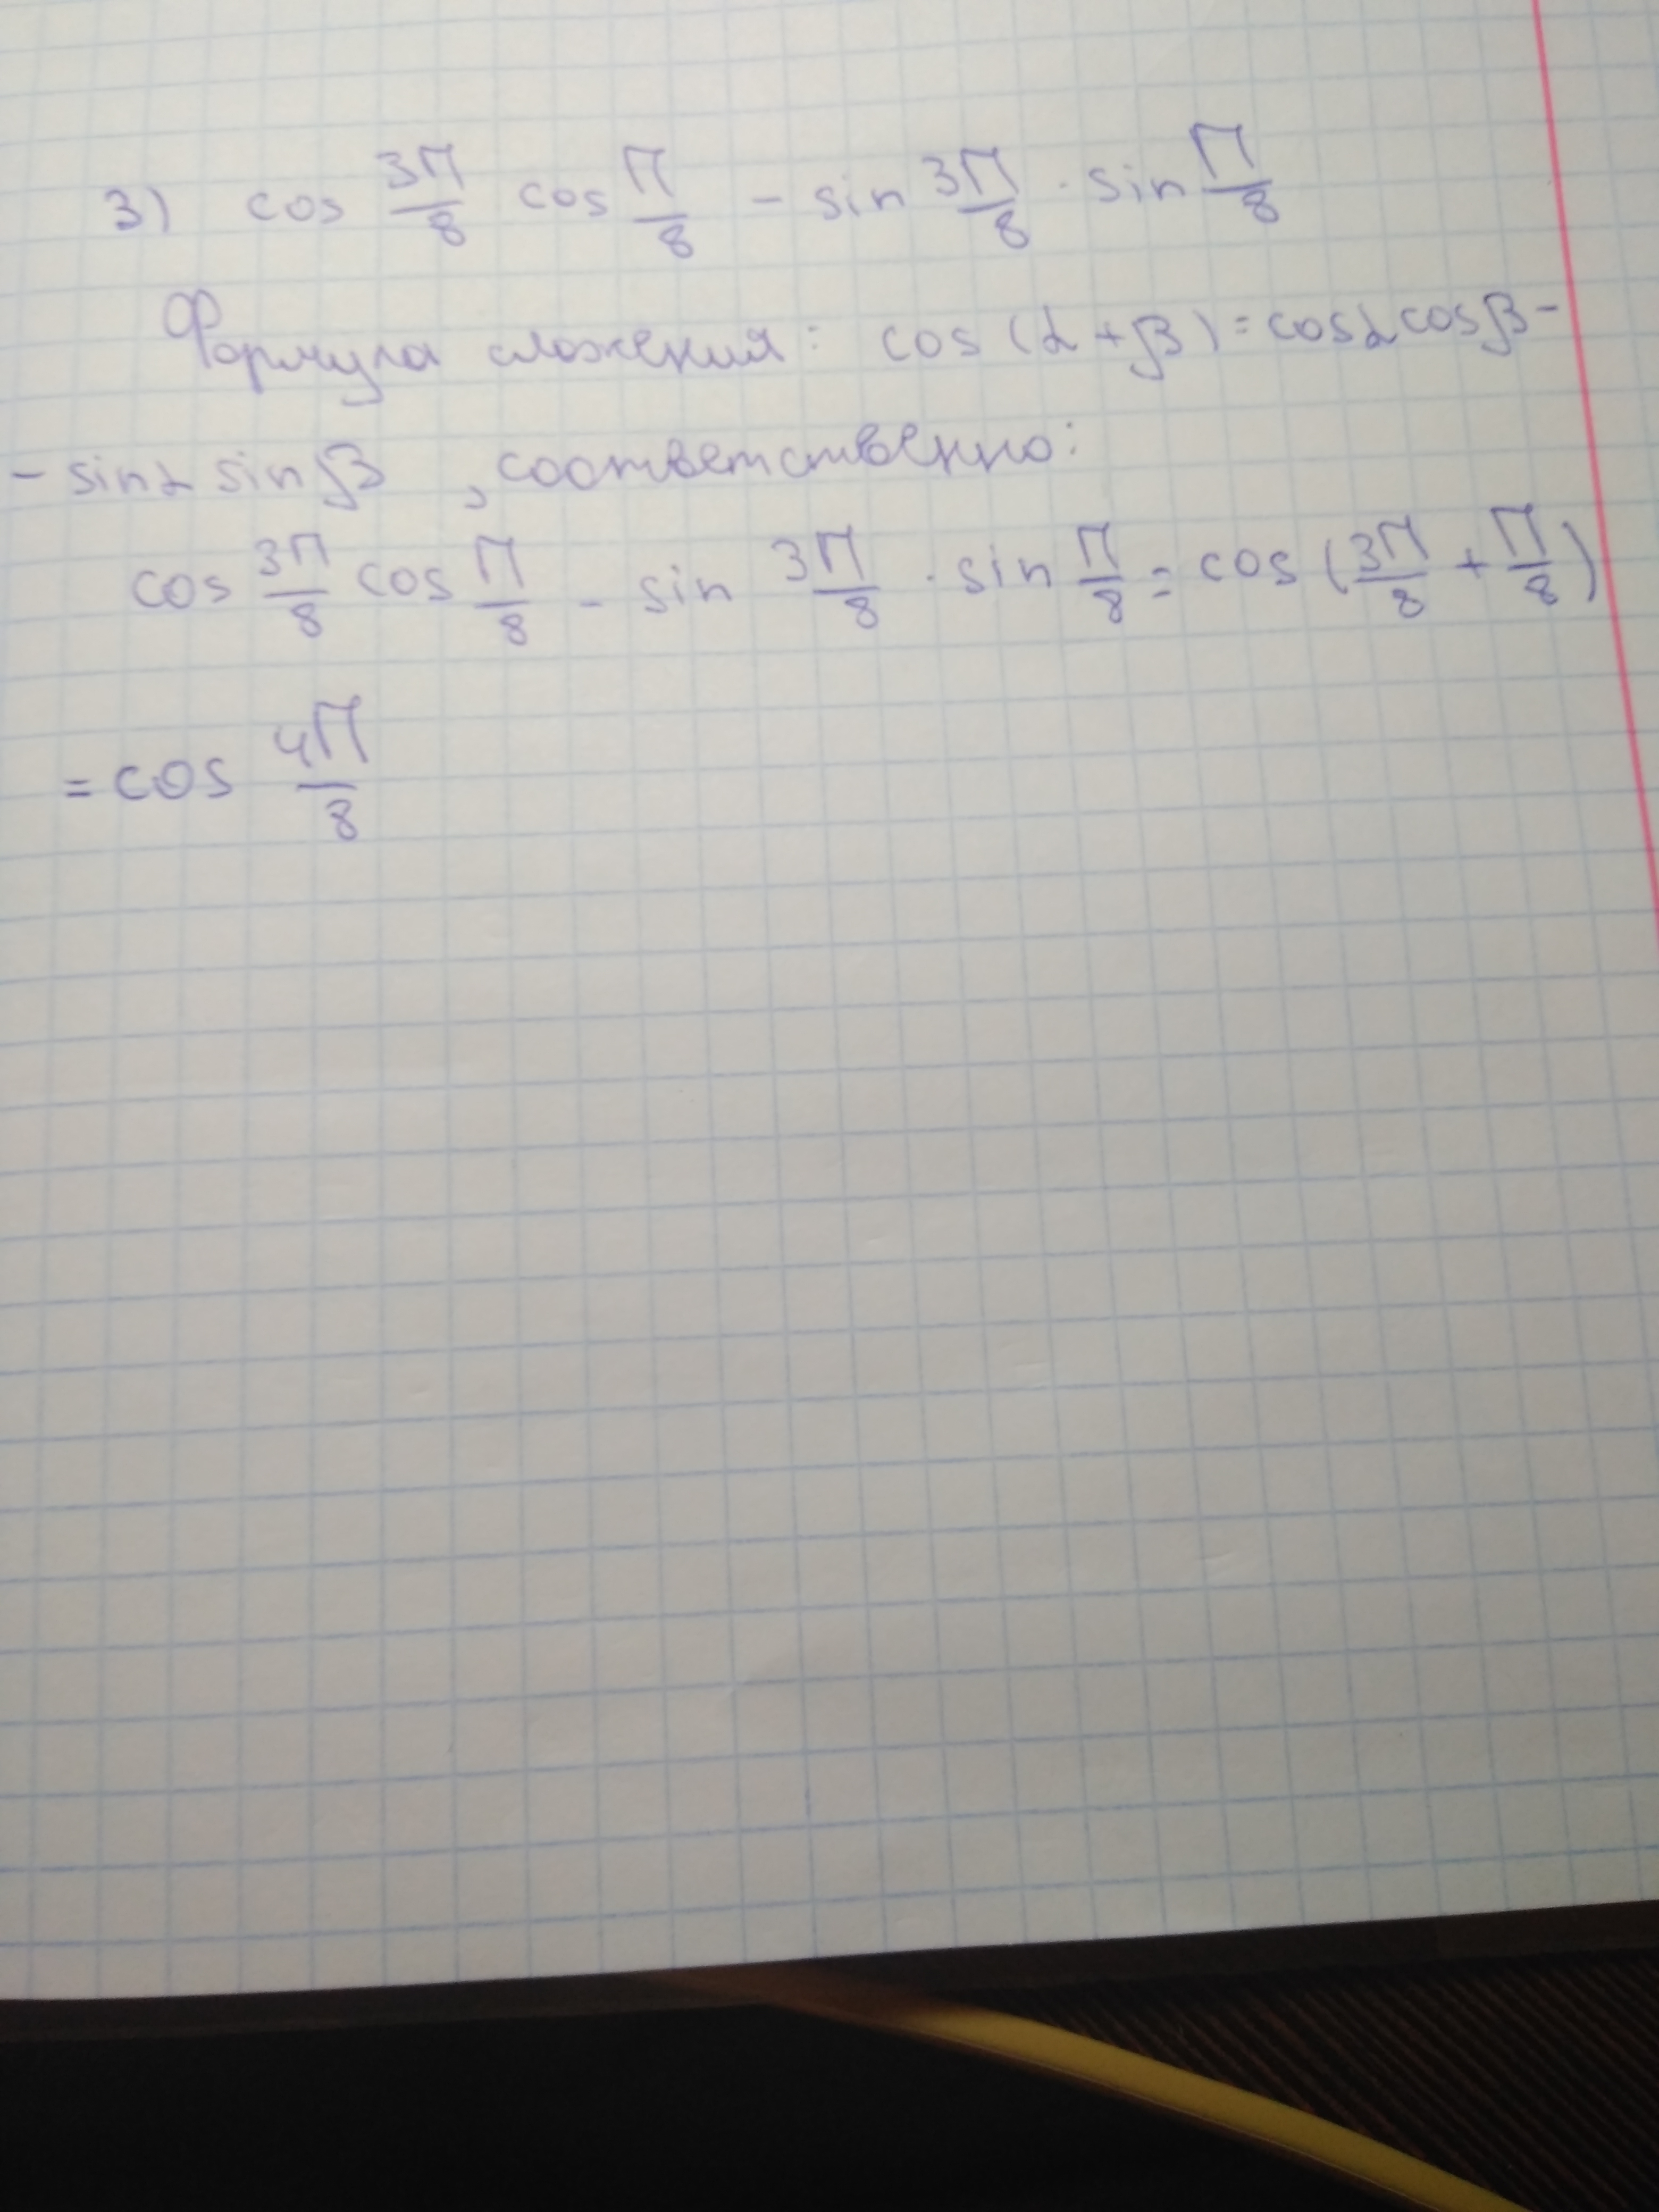 3) cos 3π/8 cos π/8 - sin 3π/8 · sin π/8
Формула сложения: cos (α + β) = cosα cosβ -
- sinα sinβ , соответственно:
cos 3π/8 cos π/8 - sin 3π/8 · sin π/8 = cos (3π/8 + π/8)
= cos 4π/8